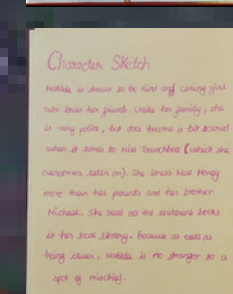 Character Sketch
Matilda is shown to be kind and caring girl
who loves her friends. Unlike her family, she
is very polite, but does become a bit scared
when it comes to Miss Trunchbull (which she
overcomes later on). She loves Miss Honey
more than her parents and her brother
Michael. She read all the childrens books
in her local library. Because as well as
being clever, Matilda is no stranger to a
spot of mischief.